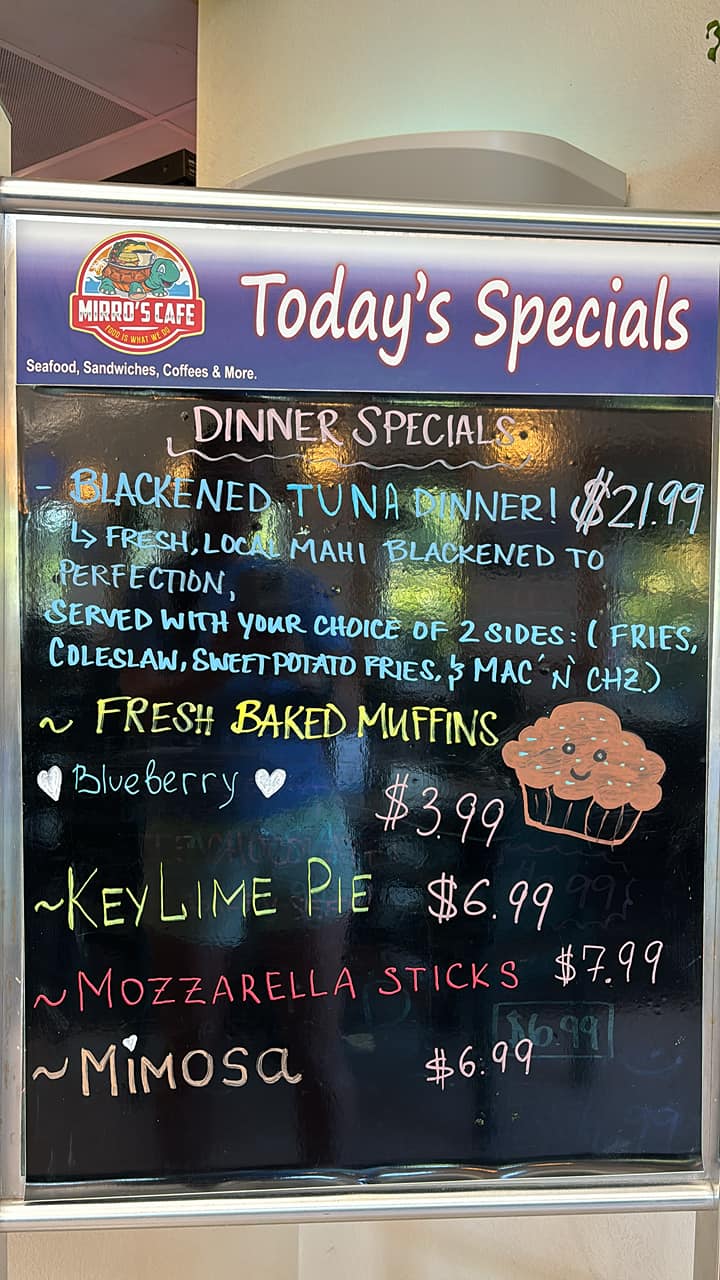 MIRRO'S CAFE
FOOD IS WHAT WE DO
Today's Specials
Seafood, Sandwiches, Coffees & More.
DINNER SPECIALS
- BLACKENED TUNA DINNER! $21.99
↳ FRESH, LOCAL MAHI BLACKENED TO
PERFECTION,
SERVED WITH YOUR CHOICE OF 2 SIDES: ( FRIES,
COLESLAW, SWEET POTATO FRIES, & MAC 'N' CHZ)
~ FRESH BAKED MUFFINS
Blueberry
$3.99
~KEY LIME PIE $6.99
~MOZZARELLA STICKS $7.99
$6.99
~MiMOSa $6.99